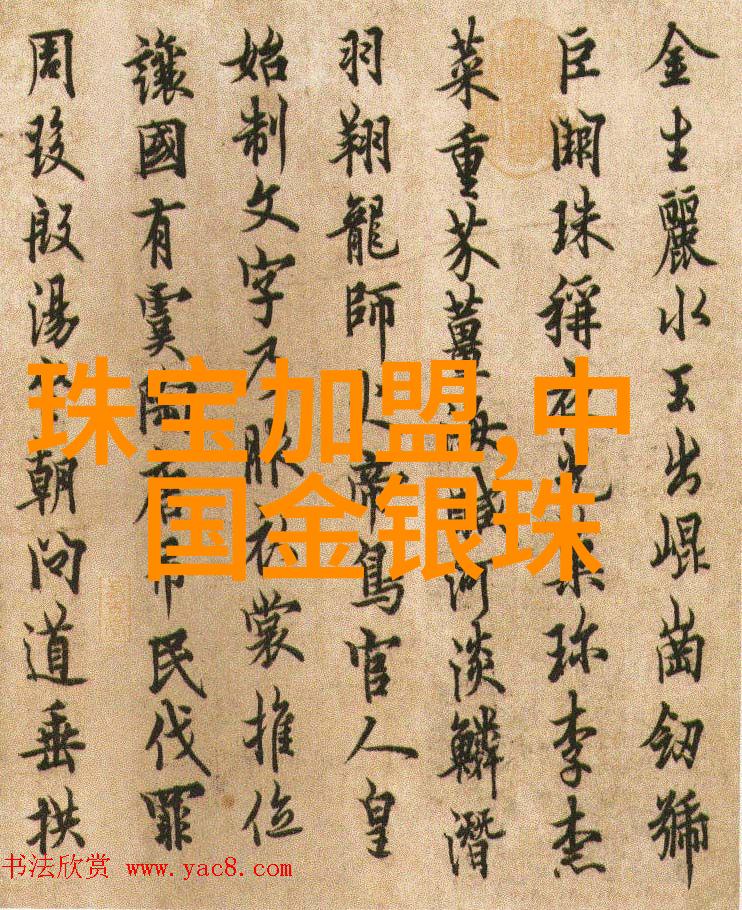 金生麗水玉出崐崗釼號
巨闕珠稱夜光菓珍李柰
菜重芥薑海鹹河淡鱗潛
羽翔龍師火帝鳥官人皇
始制文字乃服衣裳推位
讓國有虞陶唐弔民伐罪
周發殷湯坐朝問道垂拱
珠宝加盟,中
国金银珠
书法欣赏 www.yac8.com